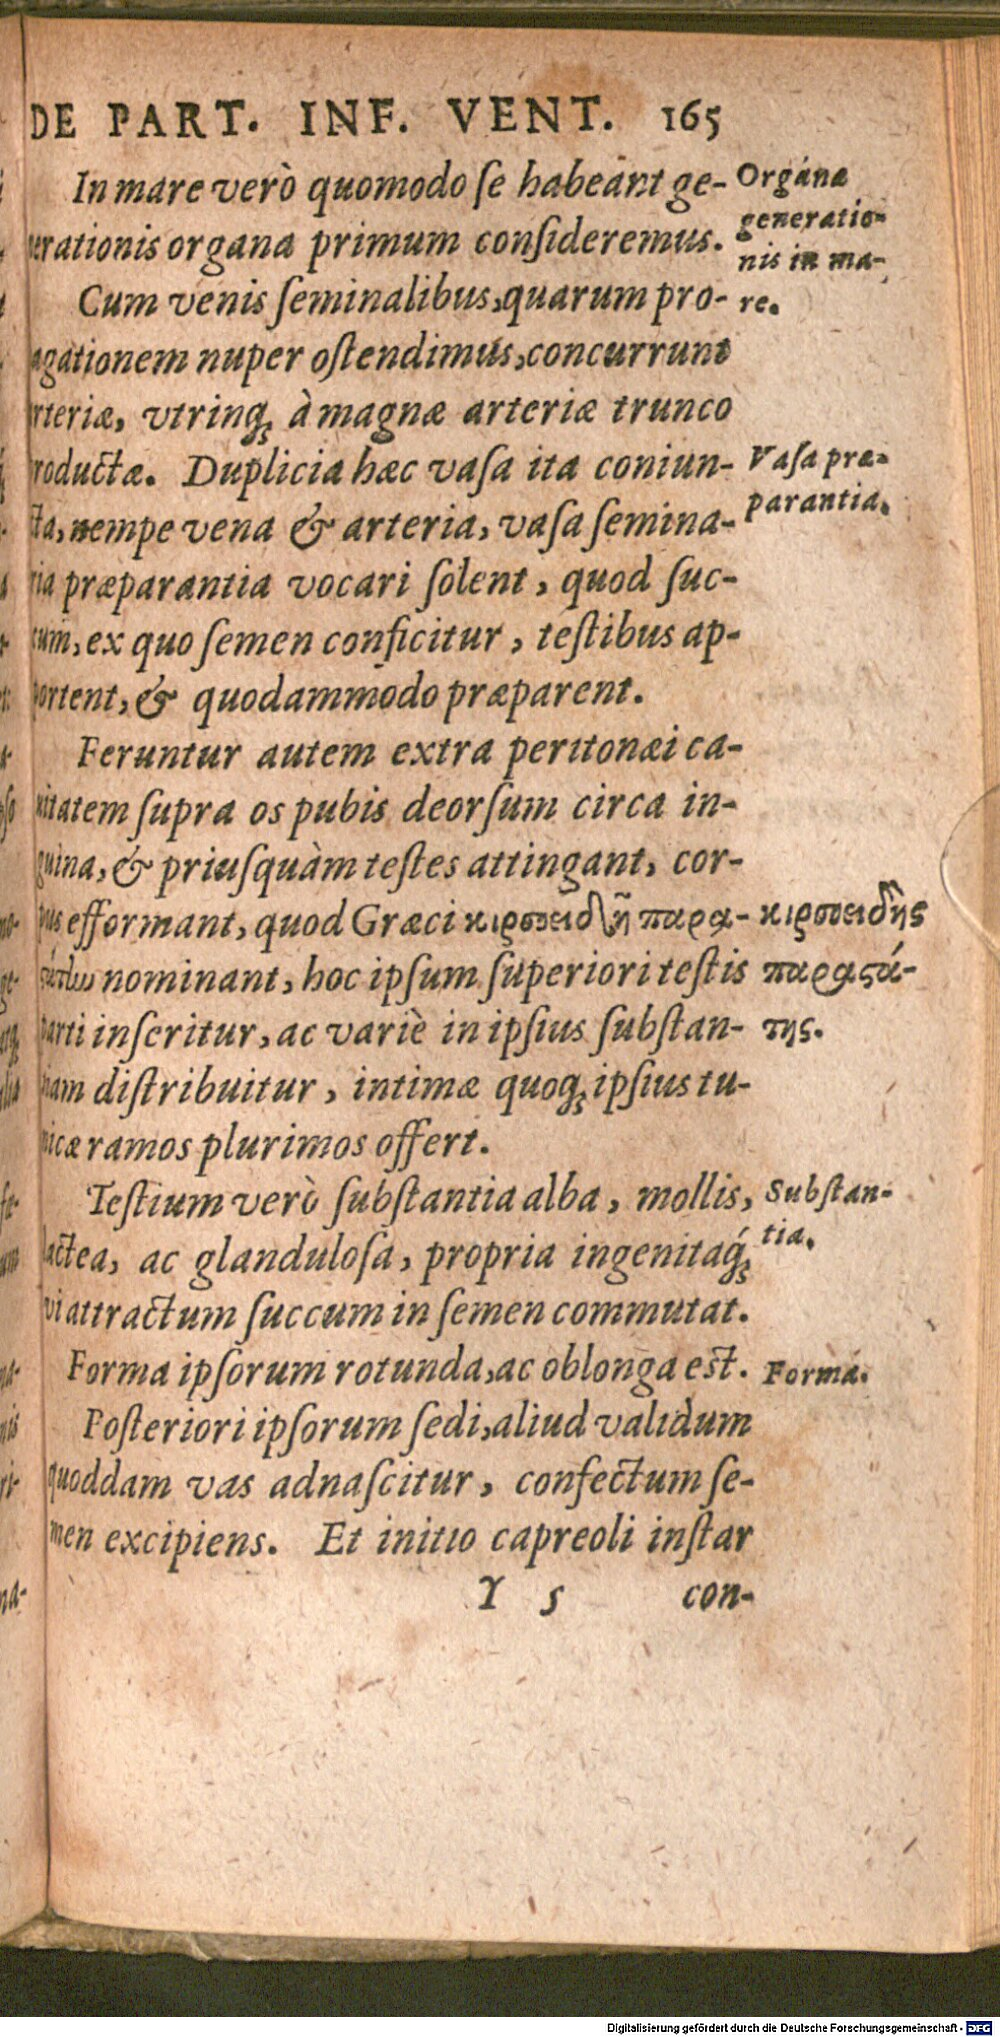 DE PART. INF. VENT. 165
In mare verò quomodo ſe habeant ge-
nerationis organa primum conſideremus.
Organa
generatio-
nis in ma-
re.
Cum venis ſeminalibus, quarum pro-
pagationem nuper oſtendimus, concurrunt
arteriæ, vtrinq; à magnæ arteriæ trunco
productæ. Duplicia hæc vaſa ita coniun-
cta, nempe vena & arteria, vaſa ſemina-
Vaſa præ-
parantia.
ria præparantia vocari ſolent, quod ſuc-
cum, ex quo ſemen conficitur, teſtibus ap-
portent, & quodammodo præparent.
Feruntur autem extra peritonæi ca-
uitatem ſupra os pubis deorſum circa in-
guina, & priuſquàm teſtes attingant, cor-
pus efformant, quod Græci κιρσοειδῆ παρα-
nominant, hoc ipſum ſuperiori teſtis
κιρσοειδὴς
παραϛά-
της.
parti inſeritur, ac variè in ipſius ſubſtan-
tiam diſtribuitur, intimæ quoq; ipſius tu-
nicæ ramos plurimos offert.
Teſtium verò ſubſtantia alba, mollis,
lactea, ac glanduloſa, propria ingenitaq́;
vi attractum ſuccum in ſemen commutat.
Subſtan-
tia.
Forma ipſorum rotunda, ac oblonga est.
Forma.
Poſteriori ipſorum ſedi, aliud validum
quoddam vas adnaſcitur, confectum ſe-
men excipiens. Et initio capreoli inſtar
Y 5 con-
Digitalisierung gefördert durch die Deutsche Forschungsgemeinschaft - DFG